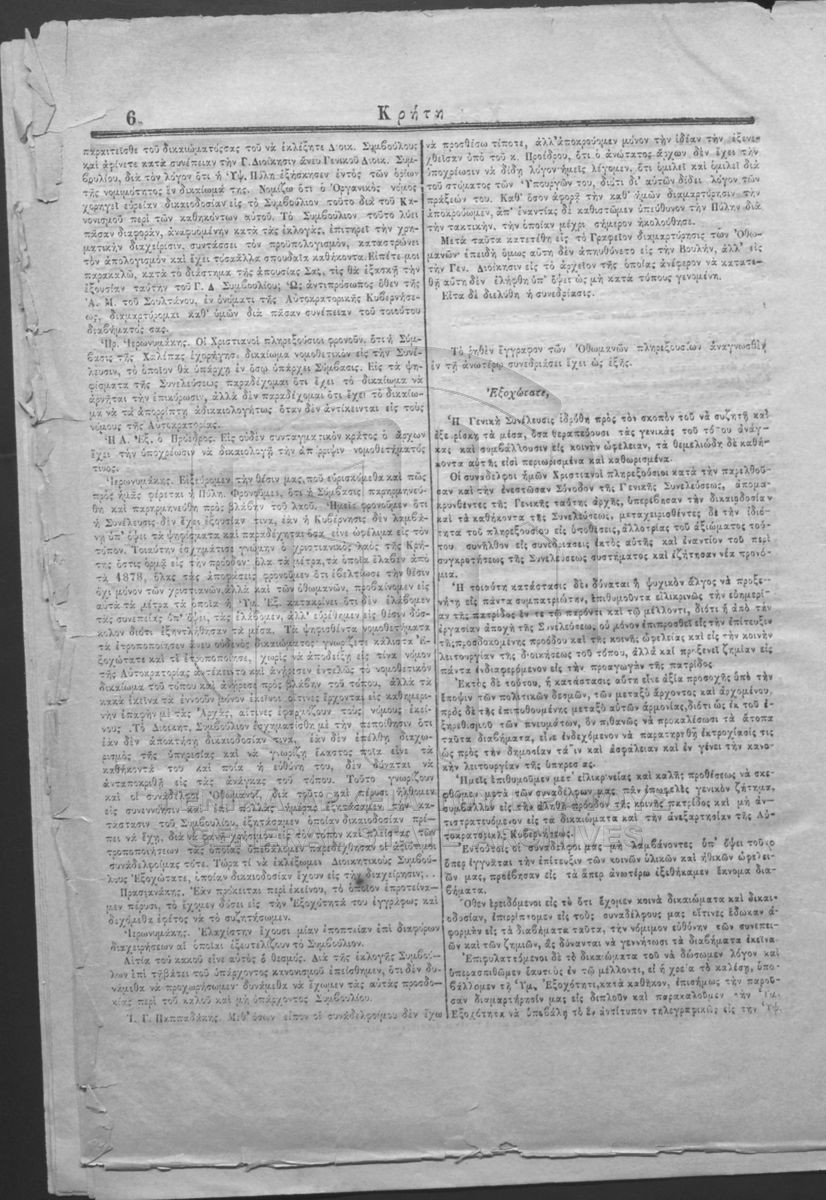 6
Κρήτη
παραιτεῖσθε τοῦ δικαιώματός σας τοῦ νὰ ἐκλέξητε Διοικ. Συμβούλους
καὶ ἀφίνετε κατὰ συνέπειαν τὴν Γ. Διοίκησιν ἄνευ Γενικοῦ Διοικ. Συμ-
βουλίου, διὰ τὸν λόγον ὅτι ἡ Ὑψ. Πύλη ἐξήσκησεν ἐντὸς τῶν ὁρίων
τῆς νομιμότητος ἓν δικαίωμά της. Νομίζω ὅτι ὁ Ὀργανικὸς νόμος
χορηγεῖ εὐρεῖαν δικαιοδοσίαν εἰς τὸ Συμβούλιον τοῦτο διὰ τοῦ Κα-
νονισμοῦ περὶ τῶν καθηκόντων αὐτοῦ. Τὸ Συμβούλιον τοῦτο λύει
πᾶσαν διαφορὰν, ἀναφυομένην κατὰ τὰς ἐκλογὰς, ἐπιτηρεῖ τὴν χρη-
ματικὴν διαχείρισιν, συντάσσει τὸν προϋπολογισμὸν, καταστρώνει
τὸν ἀπολογισμὸν καὶ ἔχει τόσα ἄλλα σπουδαῖα καθήκοντα. Εἴπετέ μοι
παρακαλῶ, κατὰ τὸ διάστημα τῆς ἀπουσίας Σας, τίς θὰ ἐξασκῇ τὴν
ἐξουσίαν ταύτην τοῦ Γ. Δ Συμβουλίου; Ὡς ἀντιπρόσωπος ὅθεν τῆς
Α. Μ. τοῦ Σουλτάνου, ἐν ὀνόματι τῆς Αὐτοκρατορικῆς Κυβερνήσε-
ως, διαμαρτύρομαι καθ' ὑμῶν διὰ πᾶσαν συνέπειαν τοῦ τοιούτου
διαβήματός σας.
Πρ. Ἱερωνυμάκης. Οἱ Χριστιανοὶ πληρεξούσιοι φρονοῦν, ὅτι ἡ Σύμ-
βασις τῆς Χαλέπας ἐχορήγησε δικαίωμα νομοθετικὸν εἰς τὴν Συνέ-
λευσιν, τὸ ὁποῖον θὰ ὑπάρχῃ ἐν ὅσῳ ὑπάρχει Σύμβασις. Εἰς τὰ ψη-
φίσματα τῆς Συνελεύσεως παραδέχομαι ὅτι ἔχει τὸ δικαίωμα νὰ
ἀρνῆται τὴν ἐπικύρωσιν, ἀλλὰ δὲν παραδέχομαι ὅτι ἔχει τὸ δικαίω-
μα νὰ τὰ ἀπορρίπτῃ ἀδικαιολογήτως ὅταν δὲν ἀντίκεινται εἰς τοὺς
νόμους τῆς Αὐτοκρατορίας.
Ἡ Α. Ἐξ. ὁ Πρόεδρος. Εἰς οὐδὲν συνταγματικὸν κράτος ὁ ἄρχων
ἔχει τὴν ὑποχρέωσιν νὰ δικαιολογῇ τὴν ἀπόρριψιν νομοθετήματός
τινος.
Ἱερωνυμάκης. Εἰξεύρομεν τὴν θέσιν μας, ποῦ εὑρισκόμεθα καὶ πῶς
πρὸς ἡμᾶς φέρεται ἡ Πύλη. Φρονοῦμεν, ὅτι ἡ Σύμβασις παρηρμηνεύ-
θη καὶ παρηρμηνεύθη πρὸς βλάβην τοῦ λαοῦ. Ἡμεῖς φρονοῦμεν ὅτι
ἡ Συνέλευσις δὲν ἔχει ἐξουσίαν τινα, ἐὰν ἡ Κυβέρνησις δὲν λαμβά-
νῃ ὑπ' ὄψει τὰ ψηφίσματα καὶ παραδέχηται ὅσα εἶνε ὠφέλιμα εἰς τὸν
τόπον. Τοιαύτην ἐσχημάτισε γνώμην ὁ χριστιανικὸς λαὸς τῆς Κρή-
της ὅστις ὁρμᾷ εἰς τὴν πρόοδον· ὅλα τὰ μέτρα, τὰ ὁποῖα ἔλαβεν ἀπὸ
τὰ 1878, ὅλας τὰς ἀποφάσεις φρονοῦμεν ὅτι ἐβελτίωσε τὴν θέσιν
ὄχι μόνον τῶν χριστιανῶν, ἀλλὰ καὶ τῶν ὀθωμανῶν, προβαίνομεν εἰς
αὐτὰ τὰ μέτρα τὰ ὁποῖα ἡ Ὑμ. Ἐξ. κατακρίνει ὅτι δὲν ἐλάβομεν
τὰς συνεπείας ὑπ' ὄψει, τὰς ἐλάβομεν, ἀλλ' εὑρέθημεν εἰς θέσιν δύσ-
κολον διότι ἐξηντλήθησαν τὰ μέσα. Τὰ ψηφισθέντα νομοθετήματα
τὰ ἐτροποποίησεν ἄνευ οὐδενὸς δικαιώματος· γνωρίζετε κάλλιστα Ἐ-
ξοχώτατε καὶ τί ἐτροποποίησε, χωρὶς νὰ ἀποδείξῃ εἰς τίνα νόμον
τῆς Αὐτοκρατορίας ἀντέκειντο καὶ ἀνῄρεσεν ἐντελῶς τὸ νομοθετικὸν
δικαίωμα τοῦ τόπου καὶ ἀνῄρεσε πρὸς βλάβην τοῦ τόπου, ἀλλὰ τὰ
κακὰ ἐκεῖνα τὰ ἐννοοῦν μόνον ἐκεῖνοι οἵτινες ἔρχονται εἰς καθημερι-
νὴν ἐπαφὴν μὲ τὰς Ἀρχὰς, αἵτινες ἐφαρμόζουν τοὺς νόμους ἐκεί-
νους. Τὸ Διοικητ. Συμβούλιον ἐσχηματίσθη μὲ τὴν πεποίθησιν ὅτι
ἐὰν δὲν ἀποκτήσῃ δικαιοδοσίαν τινα, ἐὰν δὲν ἐπέλθῃ διαχω-
ρισμὸς τῆς ὑπηρεσίας καὶ νὰ γνωρίζῃ ἕκαστος ποῖα εἶνε τὰ
καθήκοντά του καὶ ποία ἡ εὐθύνη του, δὲν δύναται νὰ
ἀνταποκριθῇ εἰς τὰς ἀνάγκας τοῦ τόπου. Τοῦτο γνωρίζουν
καὶ οἱ συνάδελφοι Ὀθωμανοὶ, διὰ τοῦτο καὶ πέρυσι ἤλθομεν
εἰς συνεννόησιν καὶ ἐπὶ πολλὰς ἡμέρας ἐξητάσαμεν τὴν κα-
τάστασιν τοῦ Συμβουλίου, ἐξητάσαμεν ὁποίαν δικαιοδοσίαν πρέ-
πει νὰ ἔχῃ, διὰ νὰ φανῇ χρήσιμον εἰς τὸν τόπον καὶ πλείστας τῶν
τροποποιήσεων τὰς ὁποίας ὑπεβάλομεν παρεδέχθησαν οἱ ἀξιότιμοι
συνάδελφοί μας τότε. Τώρα τί νὰ ἐκλέξωμεν Διοικητικοὺς Συμβού-
λους Ἐξοχώτατε, ὁποίαν δικαιοδοσίαν ἔχουν εἰς τὴν διαχείρησιν;..
Πρασινάκης. Ἐὰν πρόκειται περὶ ἐκείνου, τὸ ὁποῖον ἐπροτείνα-
μεν πέρυσι, τὸ ἔχομεν δώσει εἰς τὴν Ἐξοχότητά του ἐγγράφως καὶ
δεχόμεθα ἐφέτος νὰ τὸ συζητήσωμεν.
Ἱερωνυμάκης. Ἐλαχίστην ἔχουσι μίαν ἐποπτείαν ἐπὶ διαφόρων
διαχειρήσεων αἱ ὁποῖαι ἐξευτελίζουν τὸ Συμβούλιον.
Αἰτία τοῦ κακοῦ εἶνε αὐτὸς ὁ θεσμός. Διὰ τῆς ἐκλογῆς Συμβού-
λων ἐπὶ τῇ βάσει τοῦ ὑπάρχοντος κανονισμοῦ ἐπείσθημεν, ὅτι δὲν δυ-
νάμεθα νὰ προχωρήσωμεν· δυνάμεθα νὰ ἔχωμεν τὰς αὐτὰς προσδο-
κίας περὶ τοῦ καλοῦ καὶ μὴ ὑπάρχοντος Συμβουλίου.
Ἰ. Γ. Παππαδάκης. Μεθ' ὅσων εἶπον οἱ συνάδελφοί μου δὲν ἔχω
νὰ προσθέσω τίποτε, ἀλλ' ἀποκρούομεν μόνον τὴν ἰδέαν τὴν ἐξενε-
χθεῖσαν ὑπὸ τοῦ κ. Προέδρου, ὅτι ὁ ἀνώτατος ἄρχων δὲν ἔχει τὴν
ὑποχρέωσιν νὰ δίδῃ λόγον· ἡμεῖς λέγομεν, ὅτι ὁμιλεῖ καὶ ὁμιλεῖ διὰ
τοῦ στόματος τῶν Ὑπουργῶν του, διότι δι' αὐτῶν δίδει λόγον τῶν
πράξεών του. Καθ' ὅσον ἀφορᾷ τὴν καθ' ἡμῶν διαμαρτύρησιν τὴν
ἀποκρούωμεν, ἀπ' ἐναντίας δὲ καθιστῶμεν ὑπεύθυνον τὴν Πύλην διὰ
τὴν τακτικήν, τὴν ὁποίαν μέχρι σήμερον ἠκολούθησε.
Μετὰ ταῦτα κατετέθη εἰς τὸ Γραφεῖον διαμαρτύρησις τῶν Ὀθω-
μανῶν· ἐπειδὴ ὅμως αὕτη δὲν ἀπηυθύνετο εἰς τὴν Βουλὴν, ἀλλ' εἰς
τὴν Γεν. Διοίκησιν εἰς τὸ ἀρχεῖον τῆς ὁποίας ἀνέφερον νὰ κατατε-
θῇ αὕτη δὲν ἐλήφθη ὑπ' ὄψει ὡς μὴ κατὰ τύπους γενομένη.
Εἶτα δὲ διελύθη ἡ συνεδρίασις.
Τὸ ῥηθὲν ἔγγραφον τῶν Ὀθωμανῶν πληρεξουσίων ἀναγνωσθὲν
ἐν τῇ ἀνωτέρω συνεδριάσει ἔχει ὡς ἑξῆς.
Ἐξοχώτατε,
Ἡ Γενικὴ Συνέλευσις ἱδρύθη πρὸς τὸν σκοπὸν τοῦ νὰ συζητῇ καὶ
ἐξευρίσκῃ τὰ μέσα, ὅσα θεραπεύουσι τὰς γενικὰς τοῦ τόπου ἀνάγ-
κας καὶ συμβάλλουσιν εἰς κοινὴν ὠφέλειαν, τὰ θεμελιώδη δὲ καθή-
κοντα αὐτῆς εἰσὶ περιωρισμένα καὶ καθωρισμένα.
Οἱ συνάδελφοι ἡμῶν Χριστιανοὶ πληρεξούσιοι κατὰ τὴν παρελθοῦ-
σαν καὶ τὴν ἐνεστῶσαν Σύνοδον τῆς Γενικῆς Συνελεύσεως, ἀπομα-
κρυνθέντες τῆς Γενικῆς ταύτης ἀρχῆς, ὑπερέβησαν τὴν δικαιοδοσίαν
καὶ τὰ καθήκοντα τῆς Συνελεύσεως, μεταχειρισθέντες δὲ τὴν ἰδιό-
τητα τοῦ πληρεξουσίου εἰς ὑποθέσεις, ἀλλοτρίας τοῦ ἀξιώματος τού-
του, συνῆλθον εἰς συνεδριάσεις ἐκτὸς αὐτῆς καὶ ἐναντίον τοῦ περὶ
συγκροτήσεως τῆς Συνελεύσεως συστήματος καὶ ἐζήτησαν νέα προνό-
μια.
Ἡ τοιαύτη κατάστασις δὲν δύναται ἢ ψυχικὸν ἄλγος νὰ προξε-
νήσῃ εἰς πάντα συμπατριώτην, ἐπιθυμοῦντα εἰλικρινῶς τὴν εὐημερί-
αν τῆς πατρίδος ἔν τε τῷ παρόντι καὶ τῷ μέλλοντι, διότι ἡ ἀπὸ τὴν
ἐργασίαν ἀποχὴ τῆς Συνελεύσεως, οὐ μόνον ἐπιπροσθεῖ εἰς τὴν ἐπίτευξιν
τῆς προσδοκωμένης προόδου καὶ τῆς κοινῆς ὠφελείας καὶ εἰς τὴν κοινὴν
λειτουργίαν τῆς διοικήσεως τοῦ τόπου, ἀλλὰ καὶ προξενεῖ ζημίαν εἰς
πάντα ἐνδιαφερόμενον εἰς τὴν προαγωγὴν τῆς πατρίδος.
Ἐκτὸς δὲ τούτου, ἡ κατάστασις αὕτη εἶνε ἀξία προσοχῆς ὑπὸ τὴν
ἔποψιν τῶν πολιτικῶν δεσμῶν, τῶν μεταξὺ ἄρχοντος καὶ ἀρχομένου,
πρὸς δὲ τῆς ἐπιποθουμένης μεταξὺ αὐτῶν ἁρμονίας, διότι ὡς ἐκ τοῦ ἐ-
ξηρεθισμοῦ τῶν πνευμάτων, ὃν πιθανῶς νὰ προκαλέσωσι τὰ ἄτοπα
ταῦτα διαβήματα, εἶνε ἐνδεχόμενον νὰ παρατηρηθῇ ἐκτροχίασίς τις
ὡς πρὸς τὴν δημοσίαν τάξιν καὶ ἀσφάλειαν καὶ ἐν γένει τὴν κανο-
κὴν λειτουργίαν τῆς ὑπηρεσίας.
Ἡμεῖς ἐπιθυμοῦμεν μετ' εἰλικρινείας καὶ καλῆς προθέσεως νὰ σκε-
φθῶμεν μετὰ τῶν συναδέλφων μας πᾶν ἐπωφελὲς γενικὸν ζήτημα,
συμβάλλον εἰς τὴν ἀληθῆ πρόοδον τῆς κοινῆς πατρίδος καὶ μὴ ἀν-
τιστρατευόμενον εἰς τὰ δικαιώματα καὶ τὴν ἀνεξαρτησίαν τῆς Αὐ-
τοκρατορικῆς Κυβερνήσεως.
Ἐνῷ τοὐτοῖς οἱ συνάδελφοί μας μὴ λαμβάνοντες ὑπ' ὄψει τοῦτο
ὅπερ ἐγγυᾶται τὴν ἐπίτευξιν τῶν κοινῶν ὑλικῶν καὶ ἠθικῶν ὠφελει-
ῶν μας, προέβησαν εἰς τὰ ἅπερ ἀνωτέρω ἐξεθήκαμεν ἔκνομα δια-
βήματα.
Ὅθεν ἐρειδόμενοι εἰς τὸ ὅτι ἔχομεν κοινὰ δικαιώματα καὶ δικαι-
οδοσίαν, ἐπιρρίπτομεν εἰς τοὺς συναδέλφους μας οἵτινες ἔδωκαν ἀ-
φορμὴν εἰς τὰ διαβήματα ταῦτα, τὴν νόμιμον εὐθύνην τῶν συνεπει-
ῶν καὶ τῶν ζημιῶν, ἃς δύνανται νὰ γεννήσωσι τὰ διαβήματα ἐκεῖνα.
Ἐπιφυλαττόμενοι δὲ τὸ δικαίωμα τοῦ νὰ δώσωμεν λόγον καὶ
ὑπερασπισθῶμεν ἑαυτοὺς ἐν τῷ μέλλοντι, εἰ ἡ χρεία τὸ καλέσῃ, ὑπο-
βάλλομεν τῇ Ὑμ. Ἐξοχότητι, κατὰ καθῆκον, ἐπισήμως τὴν παροῦ-
σαν διαμαρτύρησίν μας εἰς διπλοῦν καὶ παρακαλοῦμεν τὴν Ὑμ.
Ἐξοχότητα νὰ ὑποβάλῃ τὸ ἓν ἀντίτυπον τηλεγραφικῶς εἰς τὴν Ὑψ.